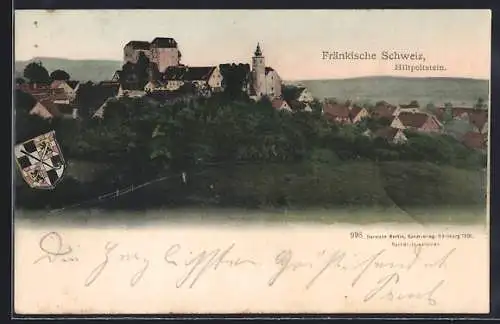 Fränkische Schweiz,
Hiltpoltstein.
998 Hermann Martin, Kunstverlag, Nürnberg 1901.
Nachdruck verboten
Die herzlichsten Grüße sendet